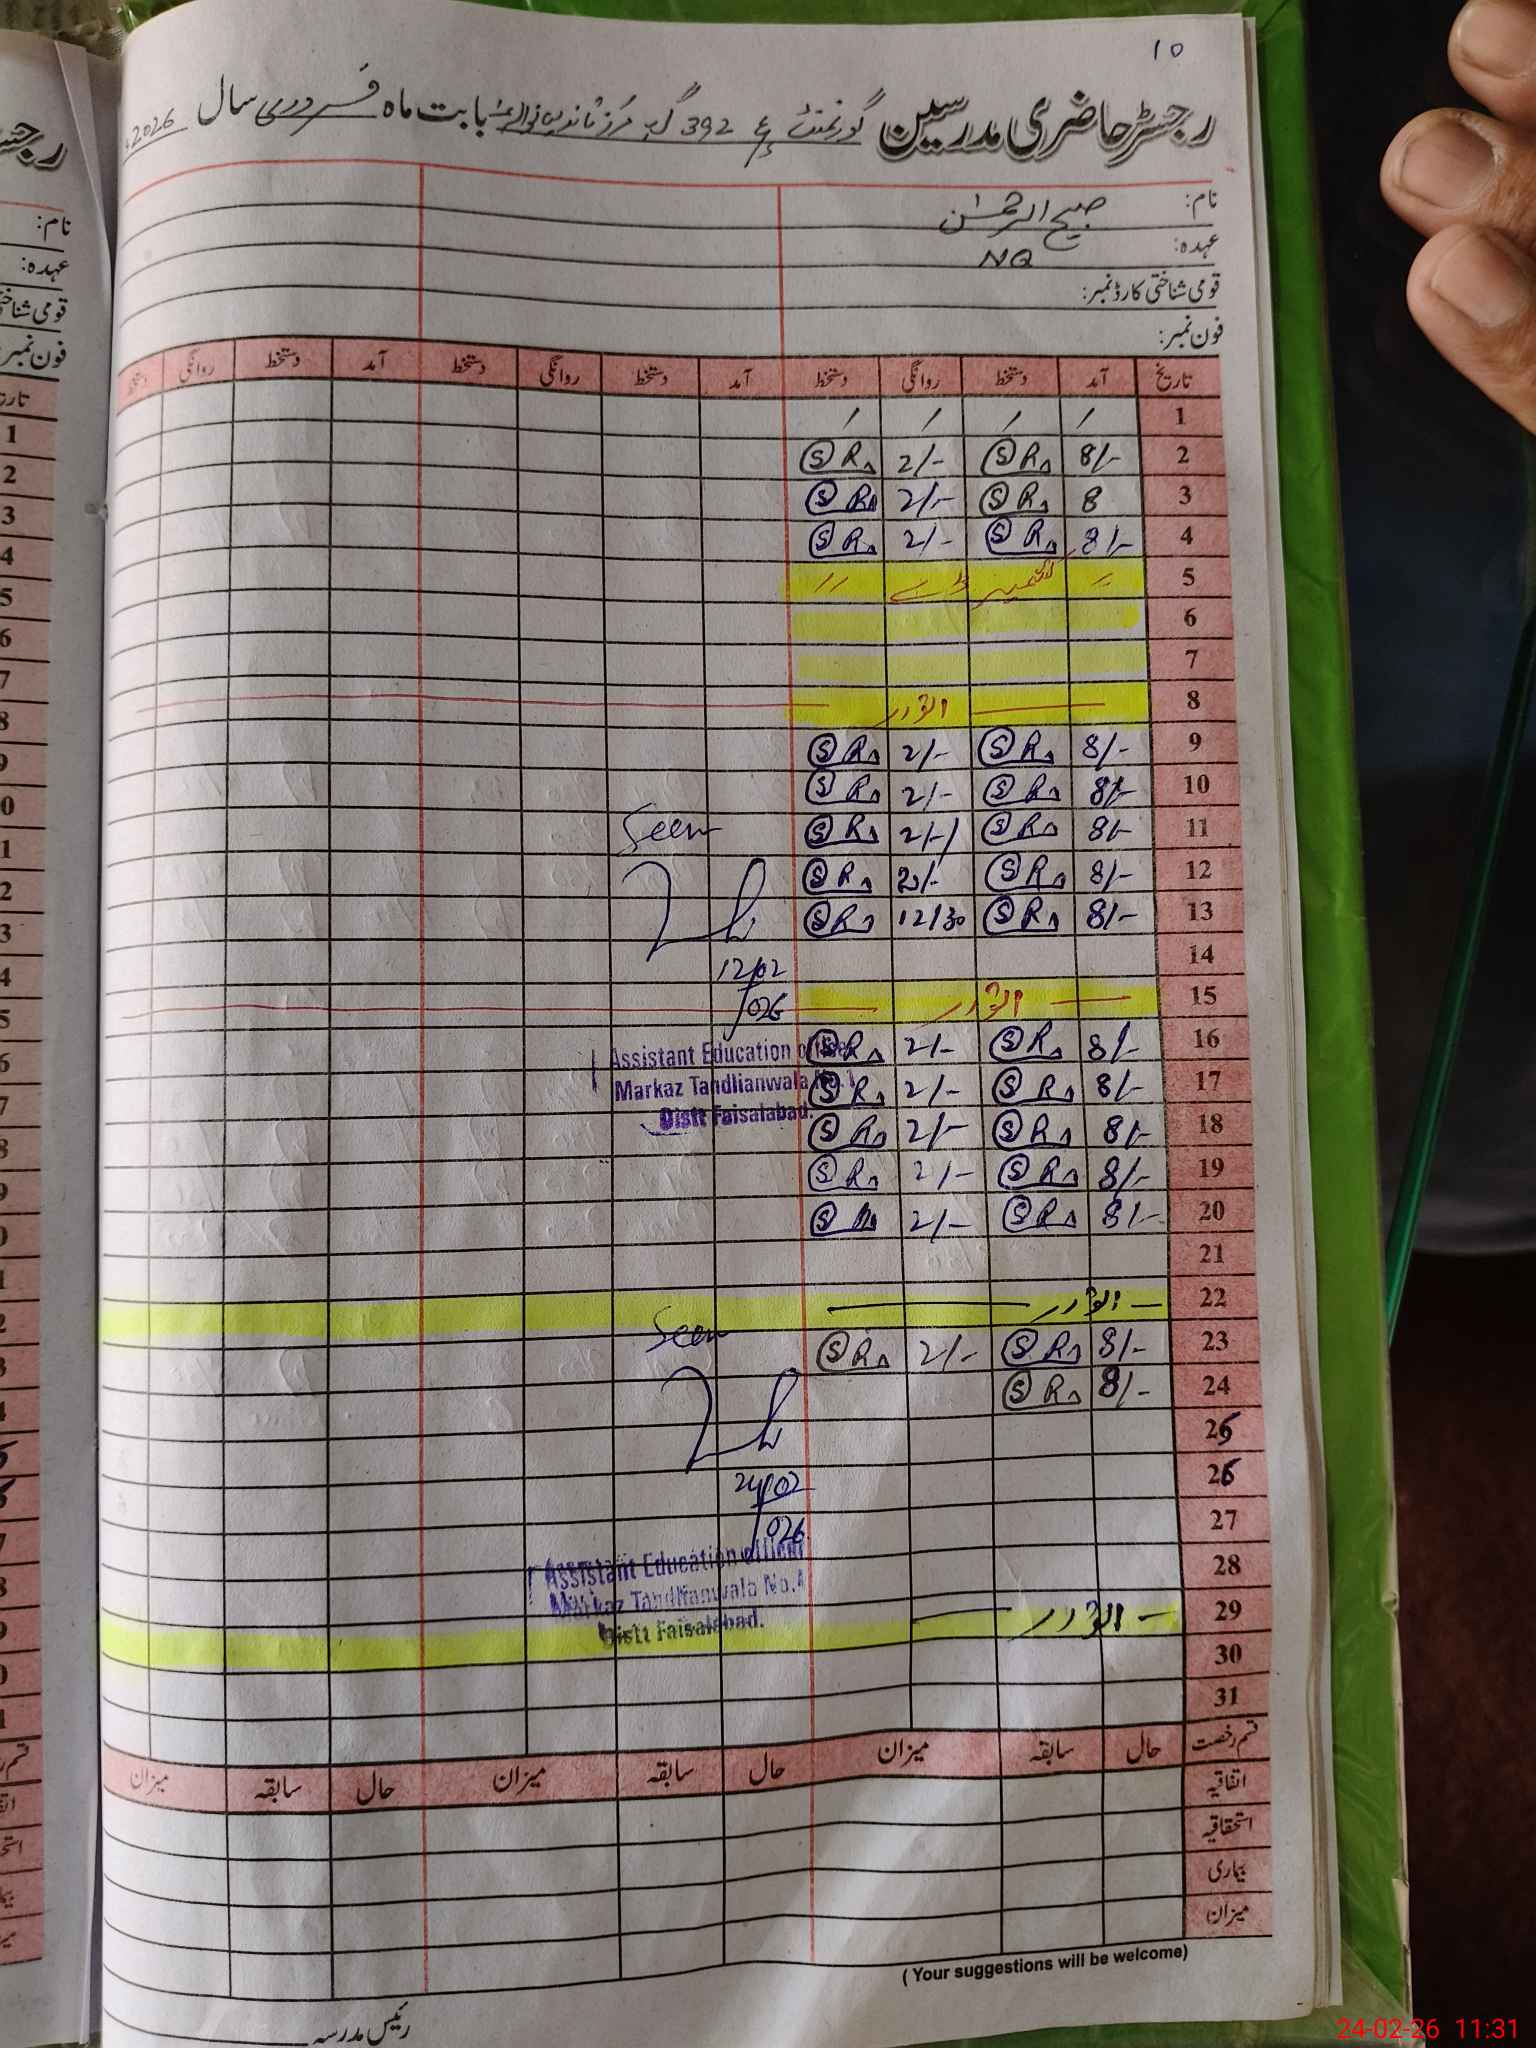 10
رجسٹر حاضری مدرسین گورنمنٹ 392 گ ب بابت ماہ فروری سال 2026ء
نام: صبیح الرحمٰن
عہدہ: NQ
قومی شناختی کارڈ نمبر:
فون نمبر:
تاریخ آمد دستخط روانگی دستخط آمد دستخط روانگی دستخط آمد دستخط روانگی دستخط
1 / / / /
2 8/- SR 2/- SR
3 8 SR 2/- SR
4 8/- SR 2/- SR
5 〃 کشمیر ڈے 〃
6
7
8 اتوار
9 8/- SR 2/- SR
10 8/- SR 2/- SR
11 8/- SR 2/- SR Seen
12 8/- SR 2/- SR
13 8/- SR 12/30 SR
14 12/02
15 اتوار /026
16 8/- SR 2/- SR Assistant Education officer
17 8/- SR 2/- SR Markaz Tandlianwala No.1
18 8/- SR 2/- SR Distt Faisalabad.
19 8/- SR 2/- SR
20 8/- SR 2/- SR
21
22 اتوار
23 8/- SR 2/- SR Seen
24 8/- SR
25
26 24/02
27 /026
28 Assistant Education officer
Markaz Tandlianwala No.
29 اتوار Distt Faisalabad.
30
31
قسم رخصت حال سابقہ میزان حال سابقہ میزان حال سابقہ میزان
اتفاقیہ
استحقاقیہ
بیماری
میزان
( Your suggestions will be welcome)
رئیس مدرسہ
24-02-26 11:31